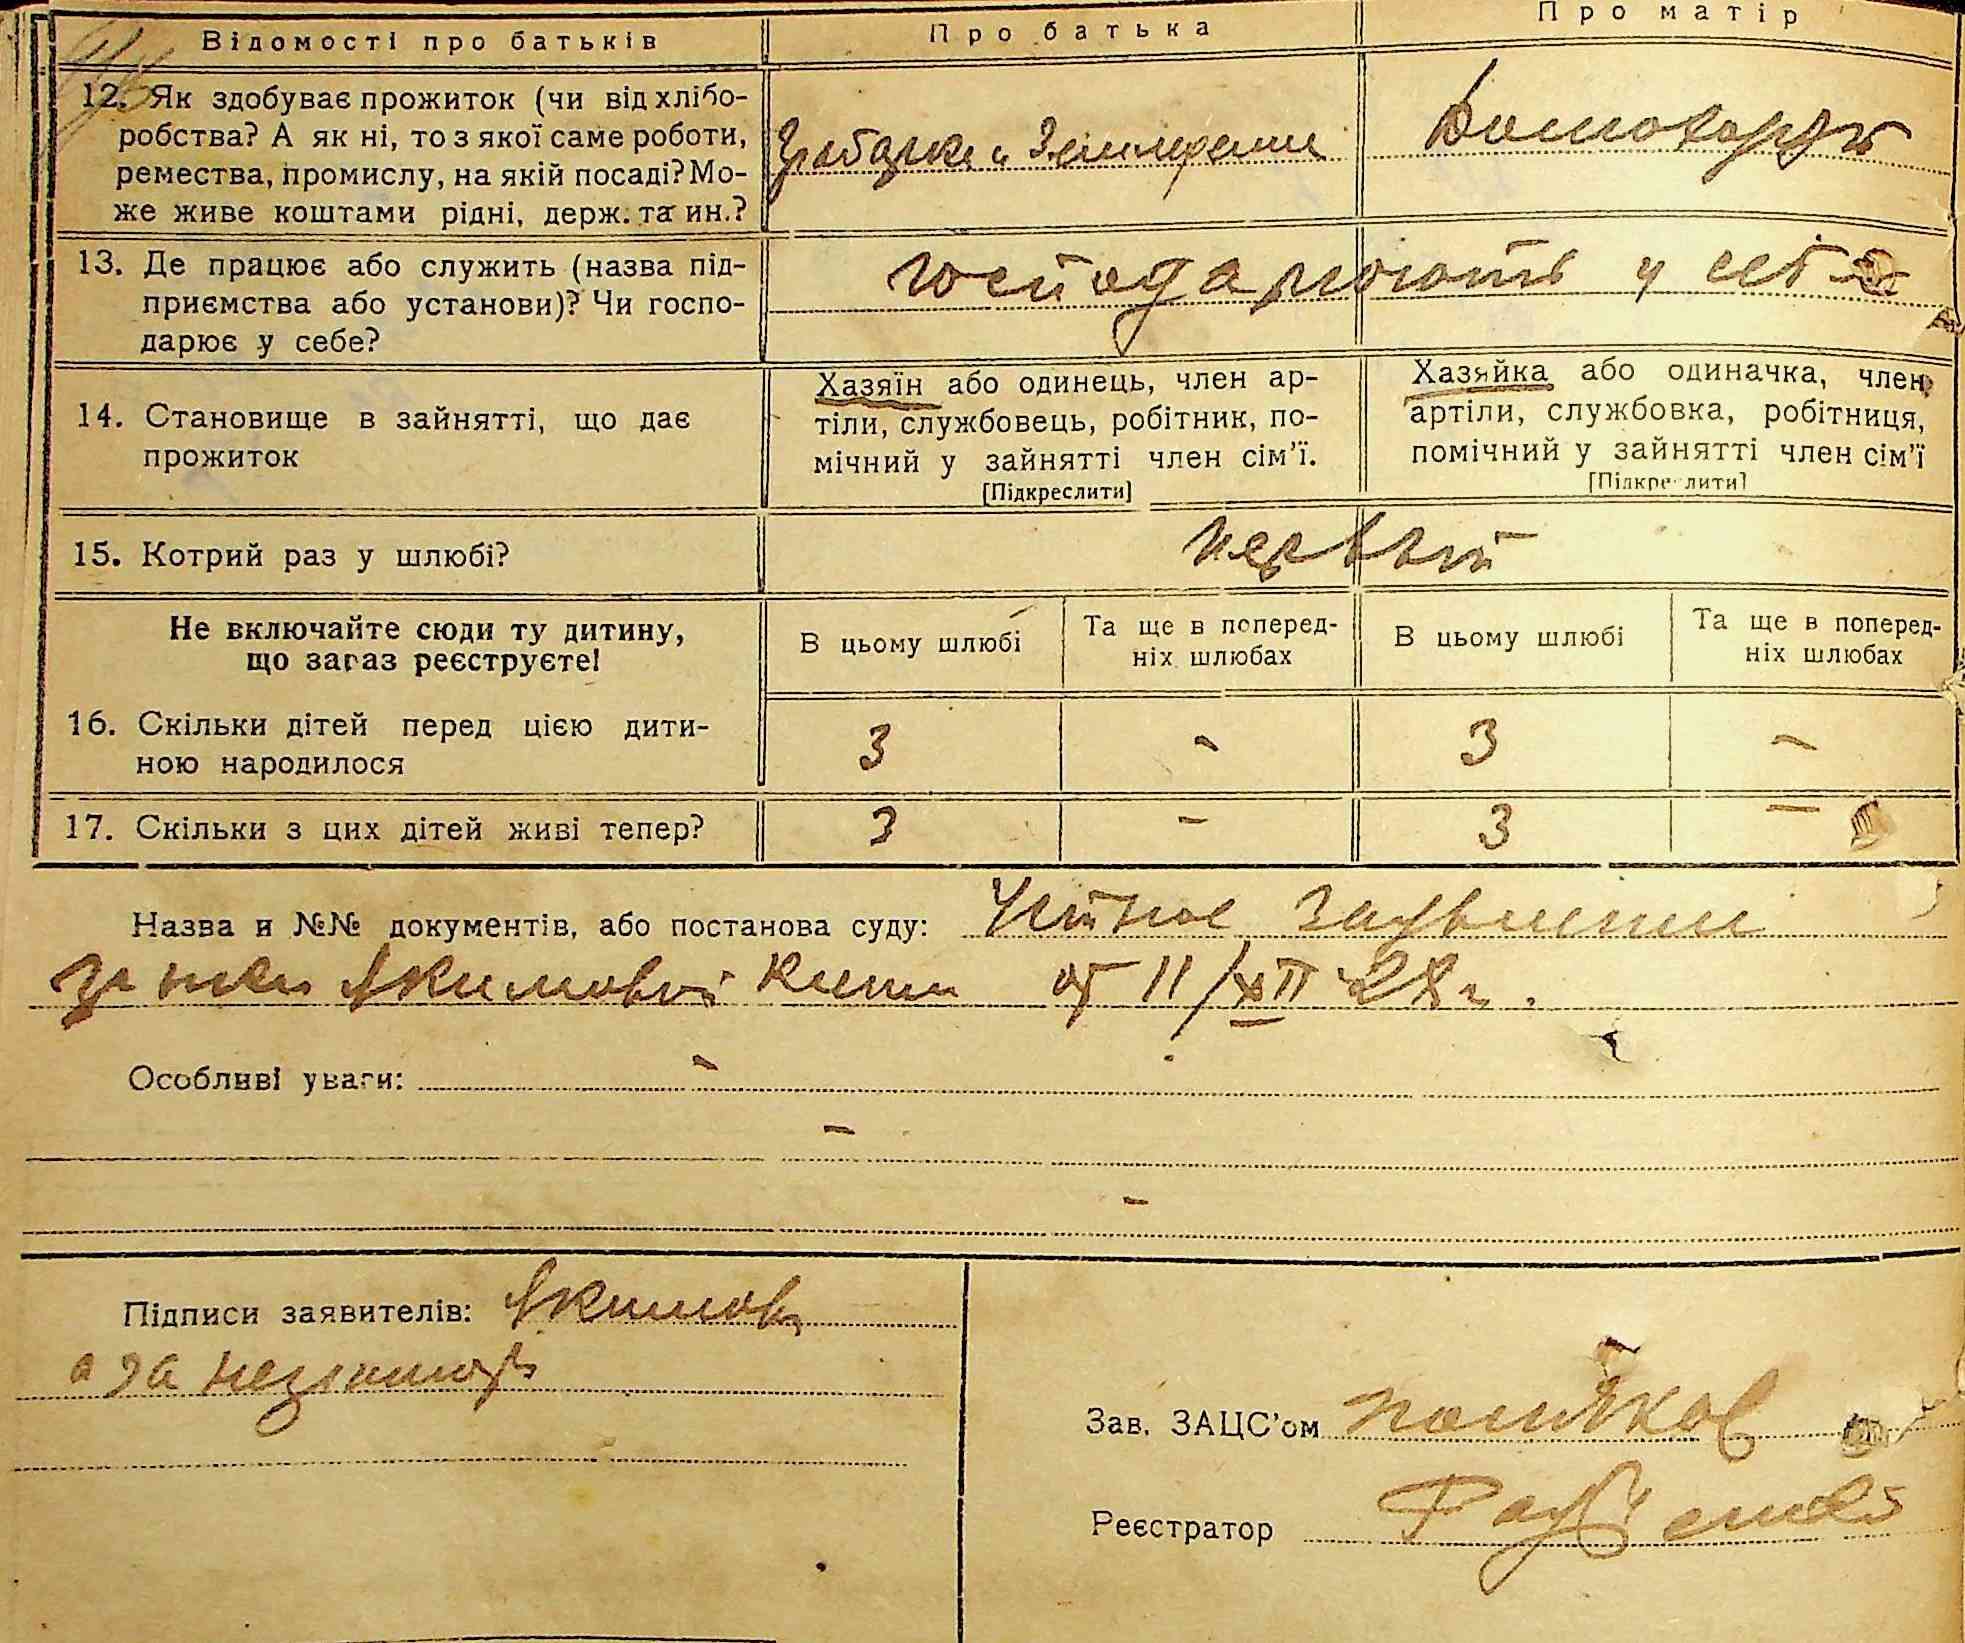 Відомості про батьків Про батька Про матір
12. Як здобуває прожиток (чи від хлібо-
робства? А як ні, то з якої саме роботи,
ремества, промислу, на якій посаді? Мо-
же живе коштами рідні, держ. та ин.?
13. Де працює або служить (назва під-
приємства або установи)? Чи госпо-
дарює у себе?
господарюють у себе
14. Становище в зайнятті, що дає
прожиток
Хазяїн або одинець, член ар-
тіли, службовець, робітник, по-
мічний у зайнятті член сім'ї.
[Підкреслити]
Хазяйка або одиначка, член
артіли, службовка, робітниця,
помічний у зайнятті член сім'ї
[Підкреслити]
15. Котрий раз у шлюбі? первый
Не включайте сюди ту дитину,
що зараз реєструєте!
В цьому шлюбі
Та ще в поперед-
ніх шлюбах
В цьому шлюбі
Та ще в поперед-
ніх шлюбах
16. Скільки дітей перед цією дити-
ною народилося
3 - 3 -
17. Скільки з цих дітей живі тепер? 3 - 3 -
Назва и №№ документів, або постанова суду: Устное
Якимовой от 11/XII 28 г.
Особливі уваги: -
-
-
Підписи заявителів: Якимов
а за
Зав. ЗАЦС'ом
Реєстратор